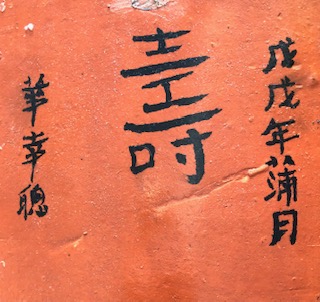 戊戌年蒲月
壽
華幸聰